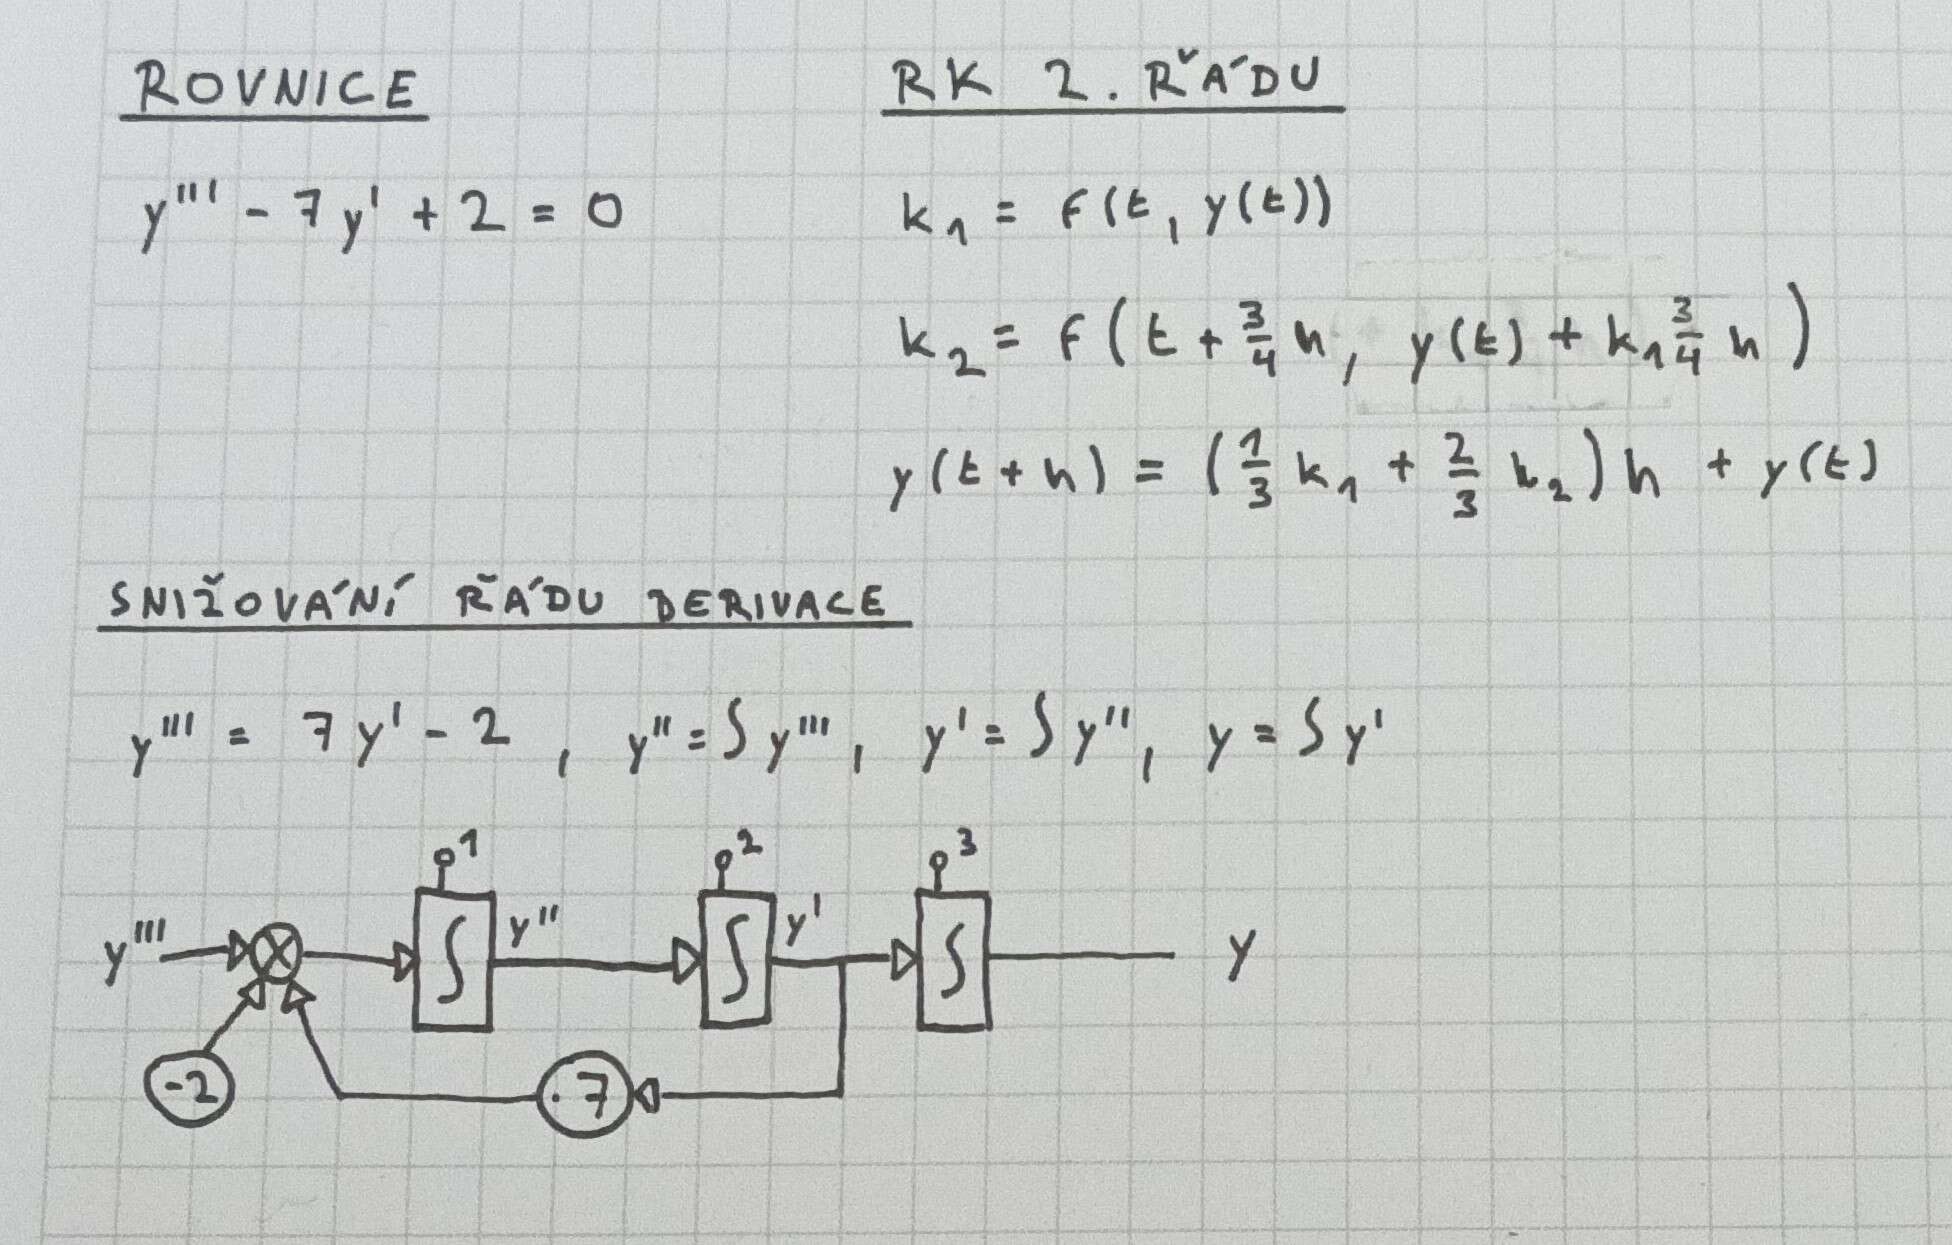 ROVNICE
y''' - 7y' + 2 = 0
RK 2. ŘÁDU
k₁ = f(t, y(t))
k₂ = f(t + 3/4 h, y(t) + k₁ 3/4 h)
y(t + h) = (1/3 k₁ + 2/3 k₂)h + y(t)
SNIŽOVÁNÍ ŘÁDU DERIVACE
y''' = 7y' - 2, y'' = ∫ y''', y' = ∫ y'', y = ∫ y'
1 2 3
y''' ∫ y'' ∫ y' ∫ y
-2 · 7